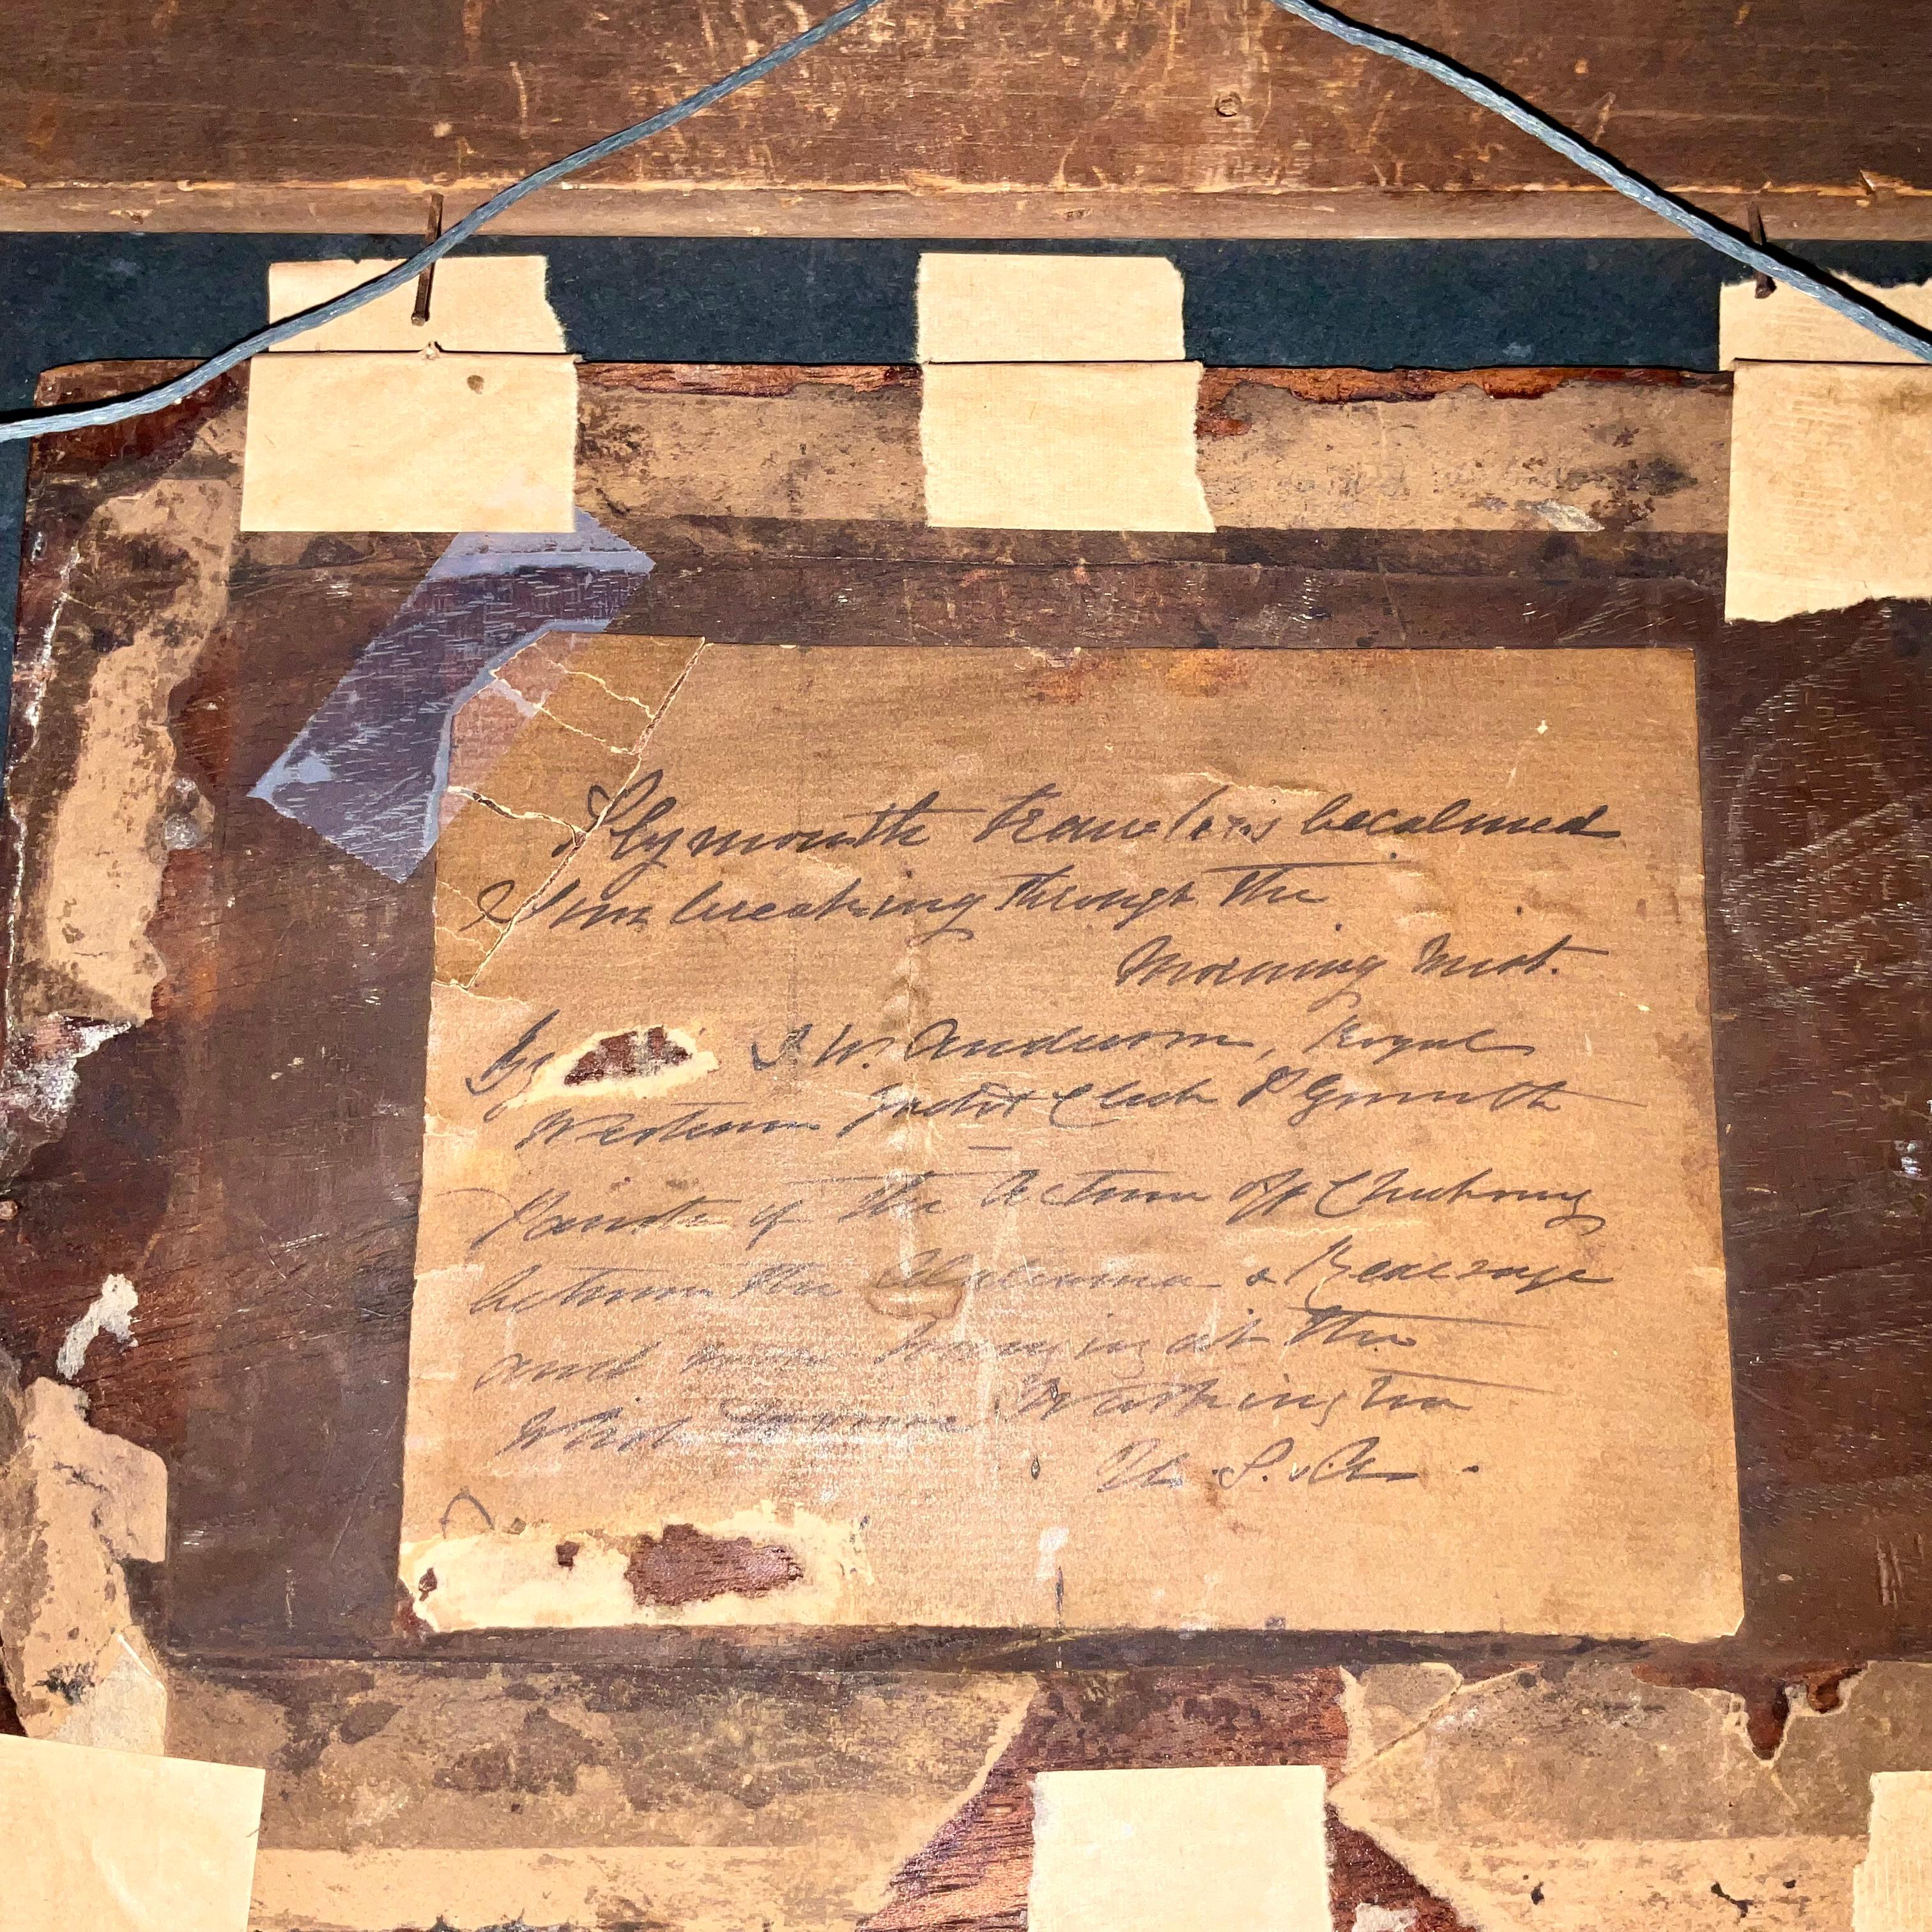 Plymouth trawlers becalmed
Sun breaking through the
Morning Mist.
By J. W. Anderson, Royal
Western Yacht Club Plymouth
Painter of the Action off Cherbourg
between the Alabama & Kearsage
and now hanging at the
White House Washington
U. S. A.